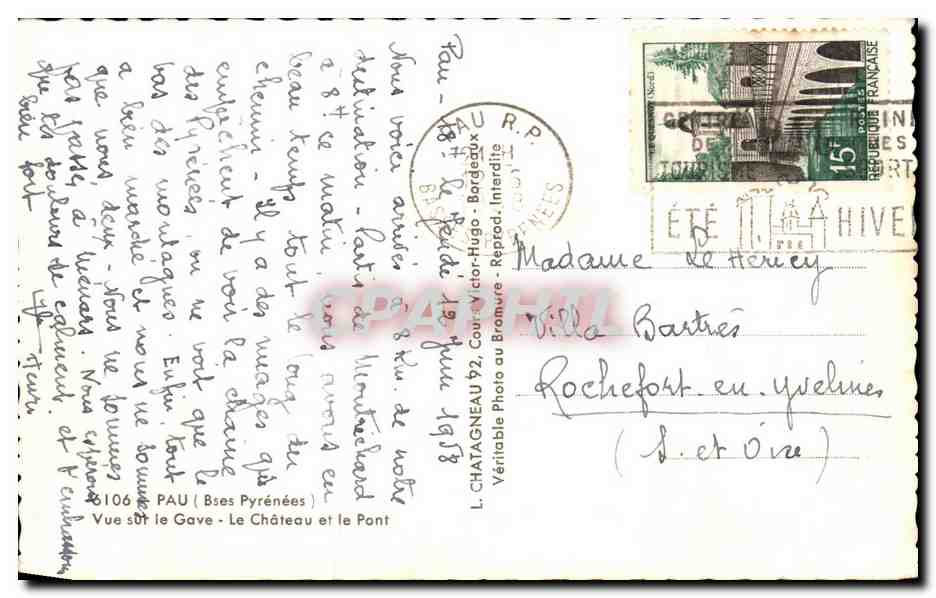 Pau - 18 h. Jeudi 19 Juin 1958
Nous voici arrivés à 8 Km de notre
destination - Partis de Montrichard
à 8 H ce matin, nous avons eu
beau temps tout le long du
chemin. Il y a des nuages qui
empêchent de voir la chaîne
des Pyrénées ou ne voit que le
bas des montagnes. Enfin tout
a bien marché et nous ne sommes
que nous deux - Nous ne sommes
pas passé à Menars. Nous espérons
que tes douleurs se calment et t'embrassons
bien fort
Henri
6106 - PAU (Bses Pyrénées)
Vue sur le Gave - Le Château et le Pont
L. CHATAGNEAU 92, Cours Victor-Hugo - Bordeaux
Véritable Photo au Bromure - Reprod. Interdite
PAU R.P.
BASSES PYRENEES
LE QUESNOY (Nord)
15F
POSTES
REPUBLIQUE FRANÇAISE
ÉTÉ HIVE
Madame Le Héricy
Villa Bartrès
Rochefort-en-Yvelines
(S. et Oise)
CPAPHIL